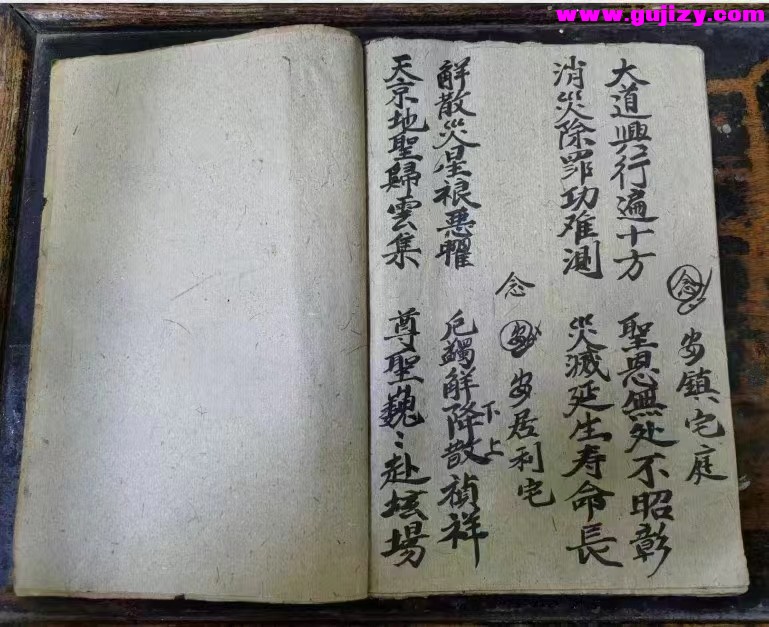 www.gujizy.com
念 安鎮宅庭
大道興行遍十方 聖恩無处不昭彰
消災除罪功难測 災滅延生寿命長
念 安居利宅
解散災星禳惡曜 厄蠲解降散下上禎祥
天京地聖歸雲集 尊聖巍〻赴坛場